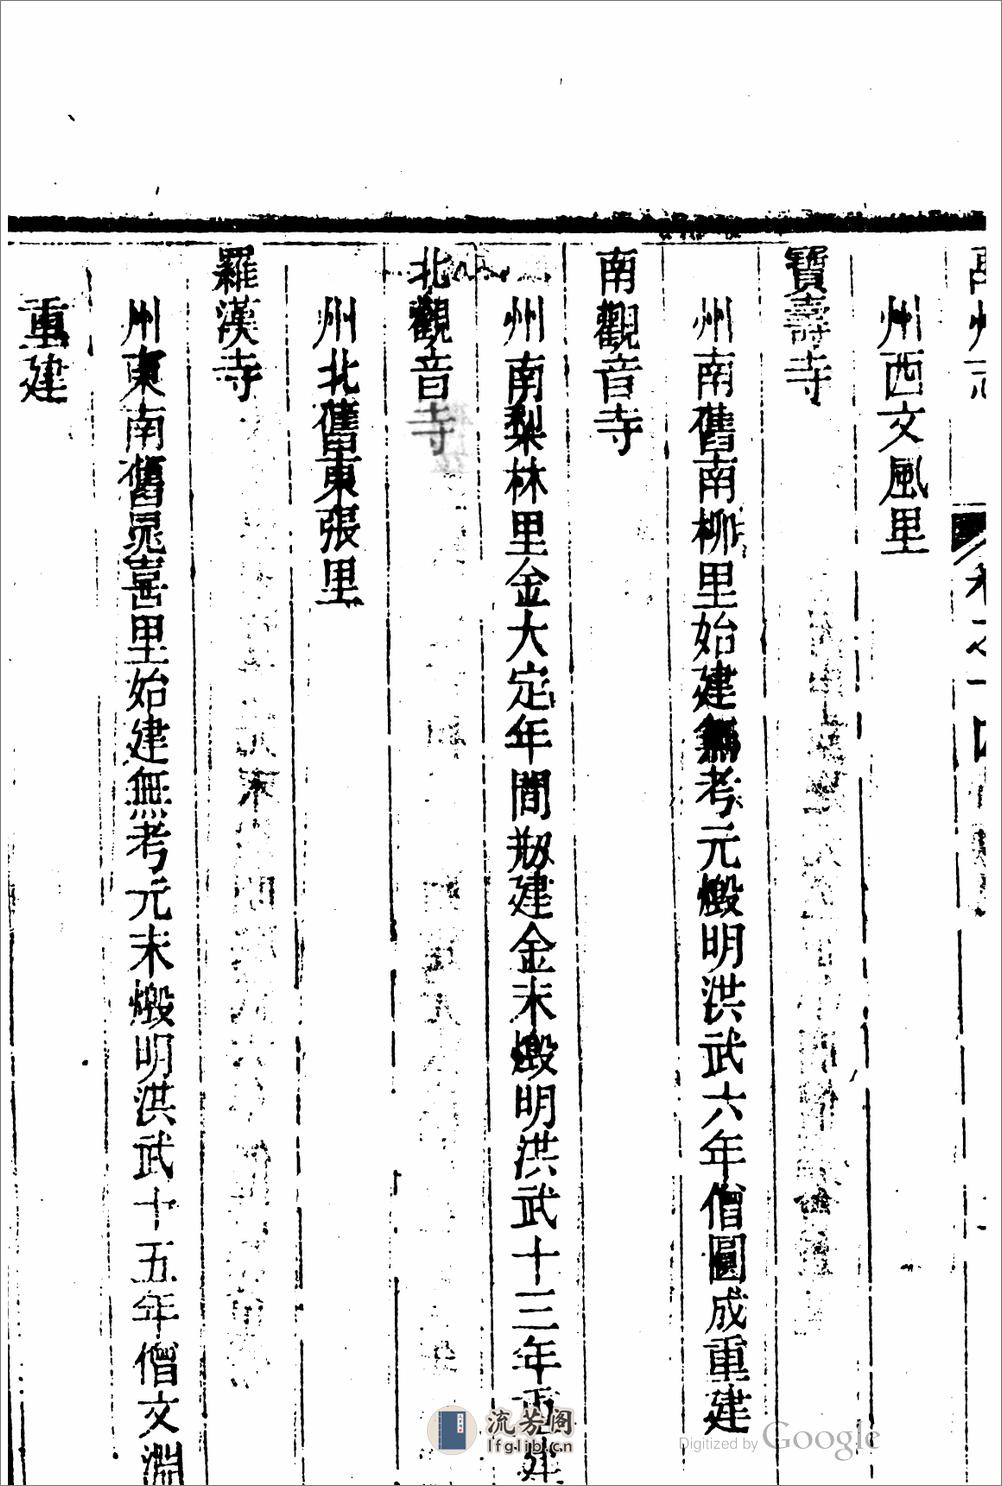 禹州志 卷之十四
州西文風里
寶壽寺
州南舊南柳里始建無考元燬明洪武六年僧圓成重建
南觀音寺
州南梨林里金大定年間剏建金末燬明洪武十三年重建
北觀音寺
州北舊東張里
羅漢寺
州東南舊晁喜里始建無考元末燬明洪武十五年僧文淵
重建
流芳阁
lfglib.cn
Digitized by Google